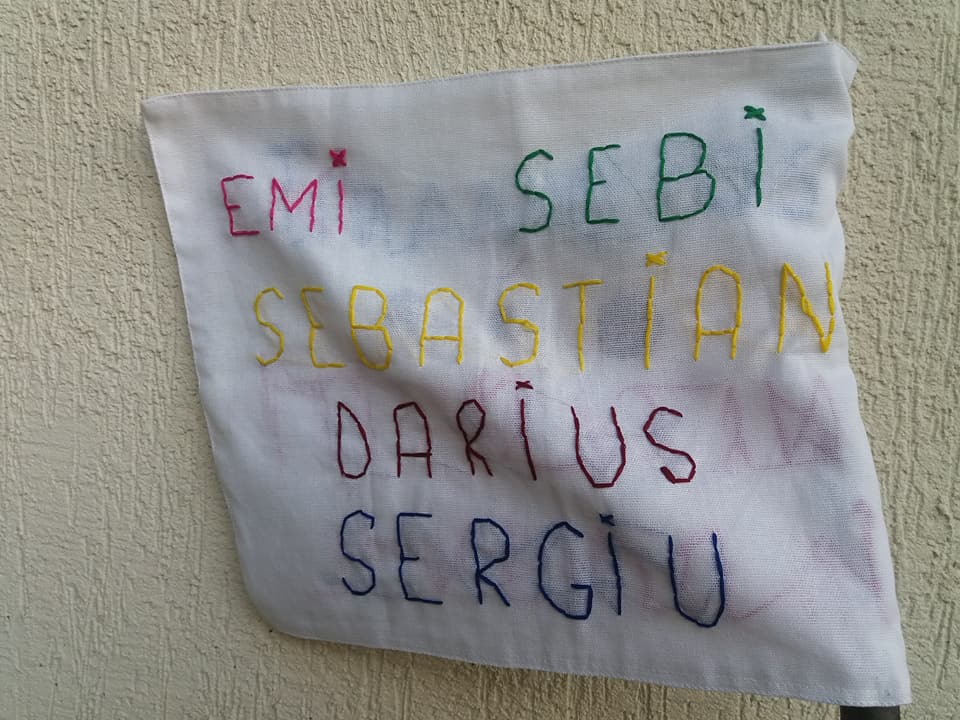 EMi SEBi
SEBASTiAN
DARiUS
SERGiU